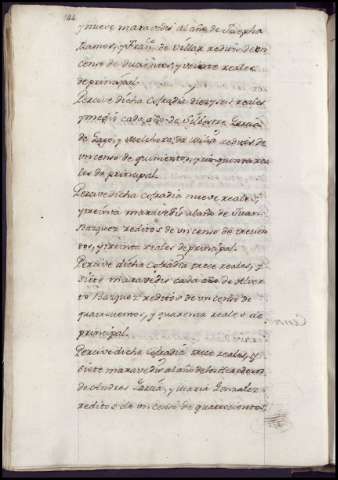 y nueve maravedis al año de Josepha
Ramos, y Fran.co de Villar reditos de un
censo de duzientos, y veinte reales
de principal.
Percive dicha Cofradia diez y seis reales
y medio cada año de Silvestre Garcia
de Lago, y Melchora de reditos de
un censo de quinientos, y cinquenta rea
les de principal.
Percive dicha Cofradia nueve reales,
y treinta maravedis al año de Juan
Bazquez reditos de un censo de trescien
tos, y treinta reales de principal.
Percive dicha Cofradia trece reales, y
siete maravedis cada año de Alver
to Bazquez reditos de un censo de
quatrocientos, y quarenta reales de
principal.
Percive dicha Cofradia trece reales, y
siete maravedis al año de los herederos
de Andres Garcia, y Maria Gonzalez
reditos de un censo de quatrocientos,